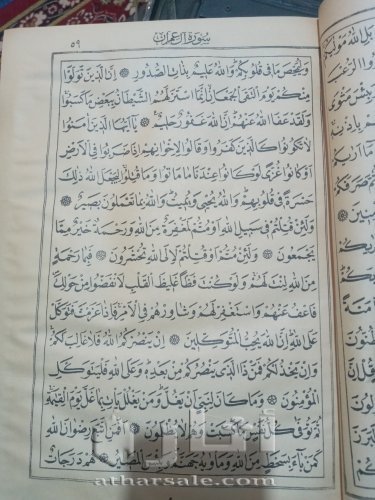 سورة آل عمران
٥٩
وليمحص ما في قلوبكم والله عليم بذات الصدور ان الذين تولوا
منكم يوم التقى الجمعان انما استزلهم الشيطان ببعض ما كسبوا
ولقد عفا الله عنهم ان الله غفور حليم يا ايها الذين امنوا
لا تكونوا كالذين كفروا وقالوا لاخوانهم اذا ضربوا في الارض
او كانوا غزى لو كانوا عندنا ما ماتوا وما قتلوا ليجعل الله ذلك
حسرة في قلوبهم والله يحيي ويميت والله بما تعملون بصير
ولئن قتلتم في سبيل الله او متم لمغفرة من الله ورحمة خير مما
يجمعون ولئن متم او قتلتم لالى الله تحشرون فبما رحمة
من الله لنت لهم ولو كنت فظا غليظ القلب لانفضوا من حولك
فاعف عنهم واستغفر لهم وشاورهم في الامر فاذا عزمت فتوكل
على الله ان الله يحب المتوكلين ان ينصركم الله فلا غالب لكم
وان يخذلكم فمن ذا الذي ينصركم من بعده وعلى الله فليتوكل
المؤمنون وما كان لنبي ان يغل ومن يغلل يات بما غل يوم القيمة
ثم توفى كل نفس ما كسبت وهم لا يظلمون افمن اتبع رضوان الله
كمن باء بسخط من الله وماويه جهنم وبئس المصير هم درجات
atharsale.com